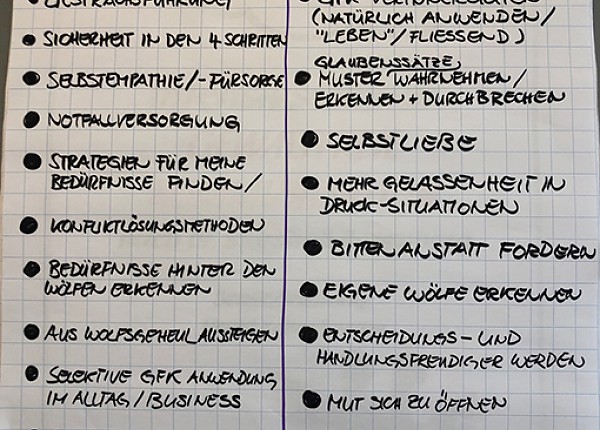 SICHERHEIT IN DEN 4 SCHRITTEN
SELBSTEMPATHIE/-FÜRSORGE
NOTFALLVERSORGUNG
STRATEGIEN FÜR MEINE
BEDÜRFNISSE FINDEN/
KONFLIKTLÖSUNGSMETHODEN
BEDÜRFNISSE HINTER DEN
WÖLFEN ERKENNEN
AUS WOLFSGEHEUL AUSSTEIGEN
SELEKTIVE GFK ANWENDUNG
IM ALLTAG/BUSINESS
(NATÜRLICH ANWENDEN/
"LEBEN"/FLIESSEND)
GLAUBENSSÄTZE,
MUSTER WAHRNEHMEN/
ERKENNEN + DURCHBRECHEN
SELBSTLIEBE
MEHR GELASSENHEIT IN
DRUCK-SITUATIONEN
BITTEN ANSTATT FORDERN
EIGENE WÖLFE ERKENNEN
ENTSCHEIDUNGS- UND
HANDLUNGSFREUDIGER WERDEN
MUT SICH ZU ÖFFNEN